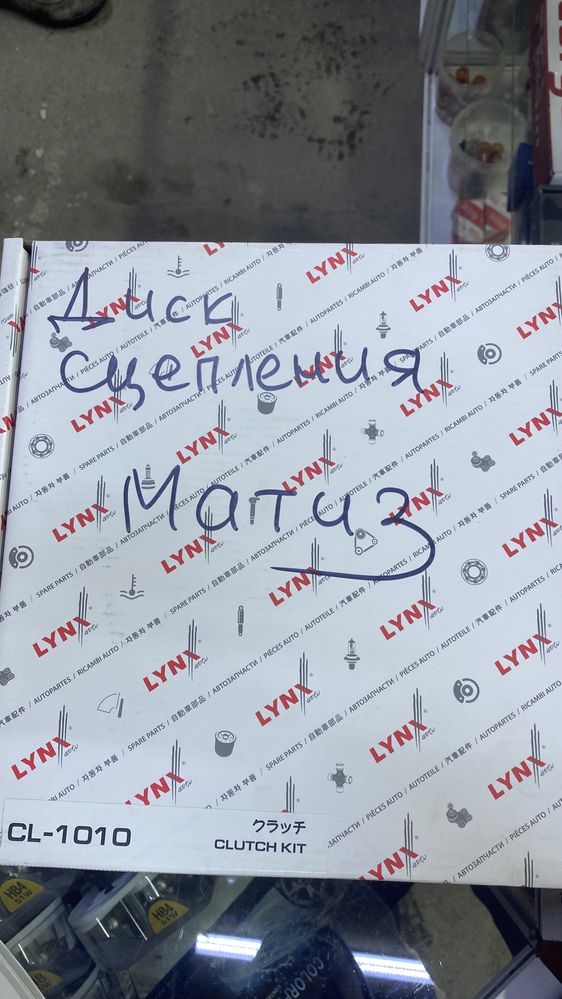 Диск
сцепления
Матиз
LYNX auto
SPARE PARTS / 自動車部品 / АВТОЗАПЧАСТИ / PIÈCES AUTO / AUTOTEILE / 汽車配件 / AUTOPARTES / RICAMBI AUTO / 자동차 부품
CL-1010
クラッチ
CLUTCH KIT
HB4
51W
HB4
51W
HB4
COLOR